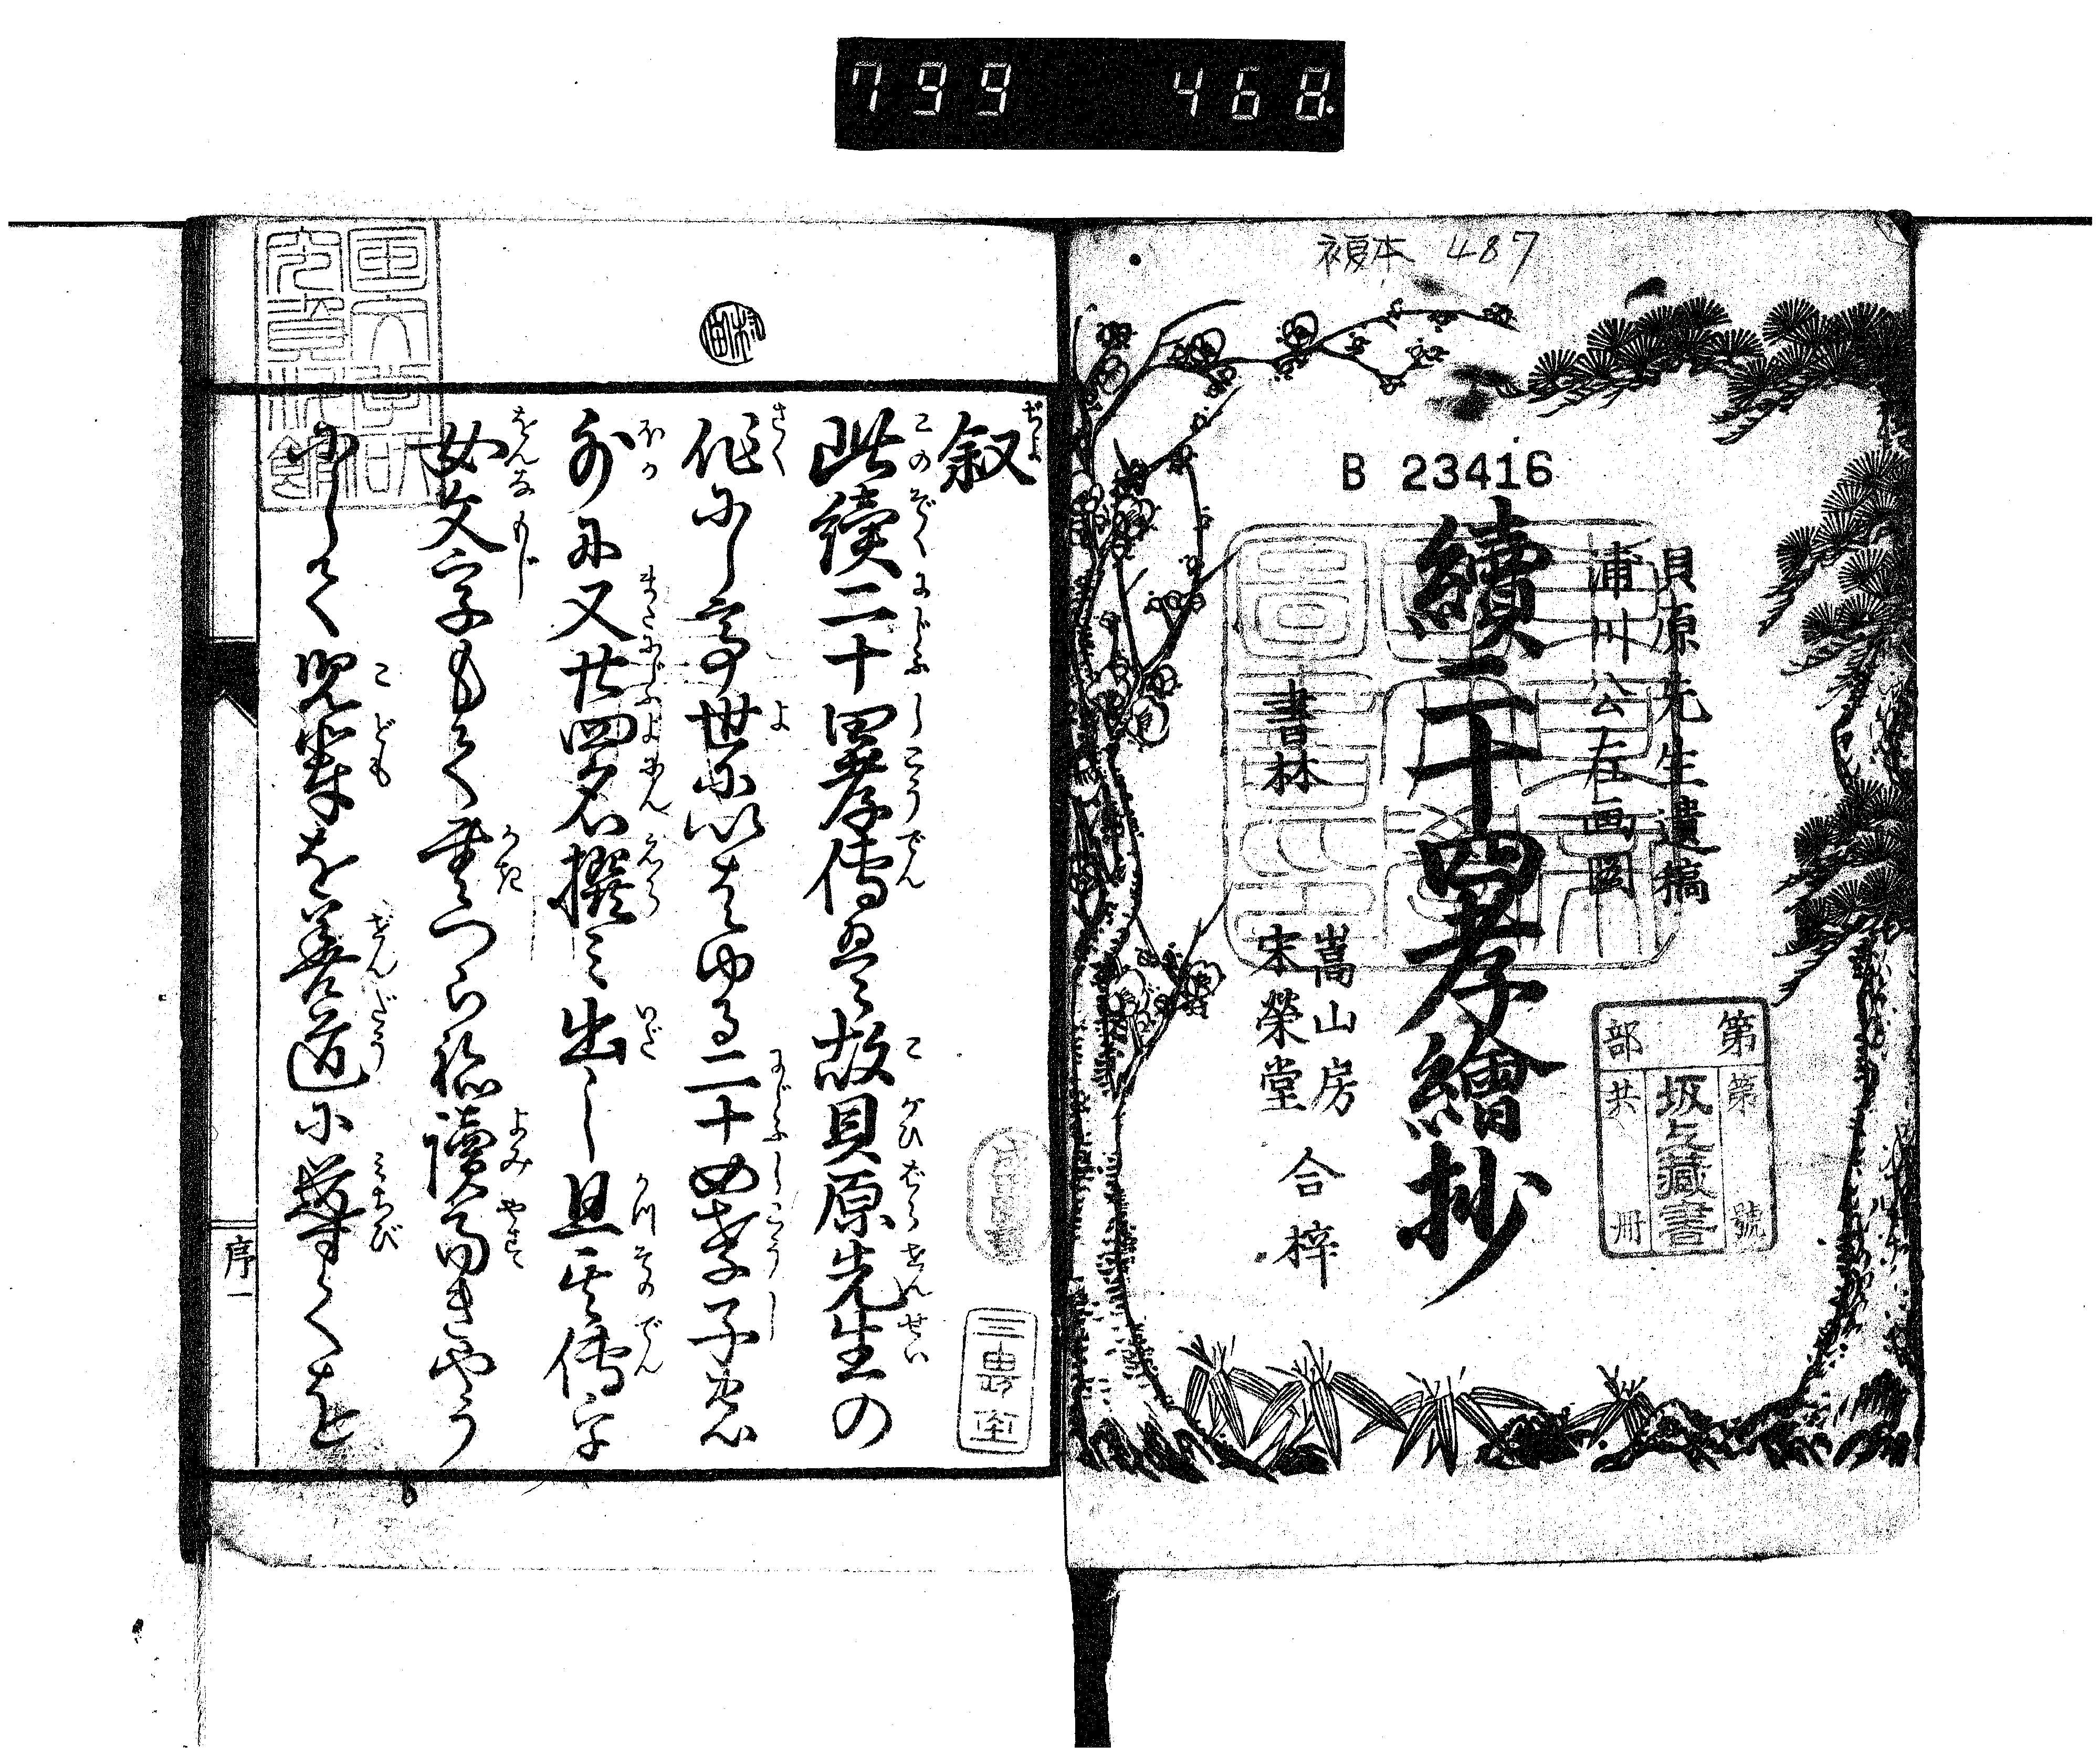 799 468
複本 487
B 23416
貝原先生遺稿
浦川公左画図
續二十四孝繪抄
書林
嵩山房
宋榮堂
合梓
第 部
第 號
坂上藏書
共 冊
叙
此續二十四孝傳是ハ故貝原先生の
作にして世に以はゆる二十四孝子の
外に又廿四名撰ミ出し且其傳字
女文字もて書つらね讀易きやう
にして児輩を善道に導くを
序一